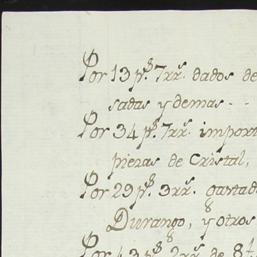 Por 13 p.s 7 rr.s dados de
sadas y demas - -
Por 34 p.s 7 rr.s import
piezas de Cristal,
Por 29 p.s 3 rr.s gastad
Durango, y otros
Por 43 p.s 2 rr.s de 8